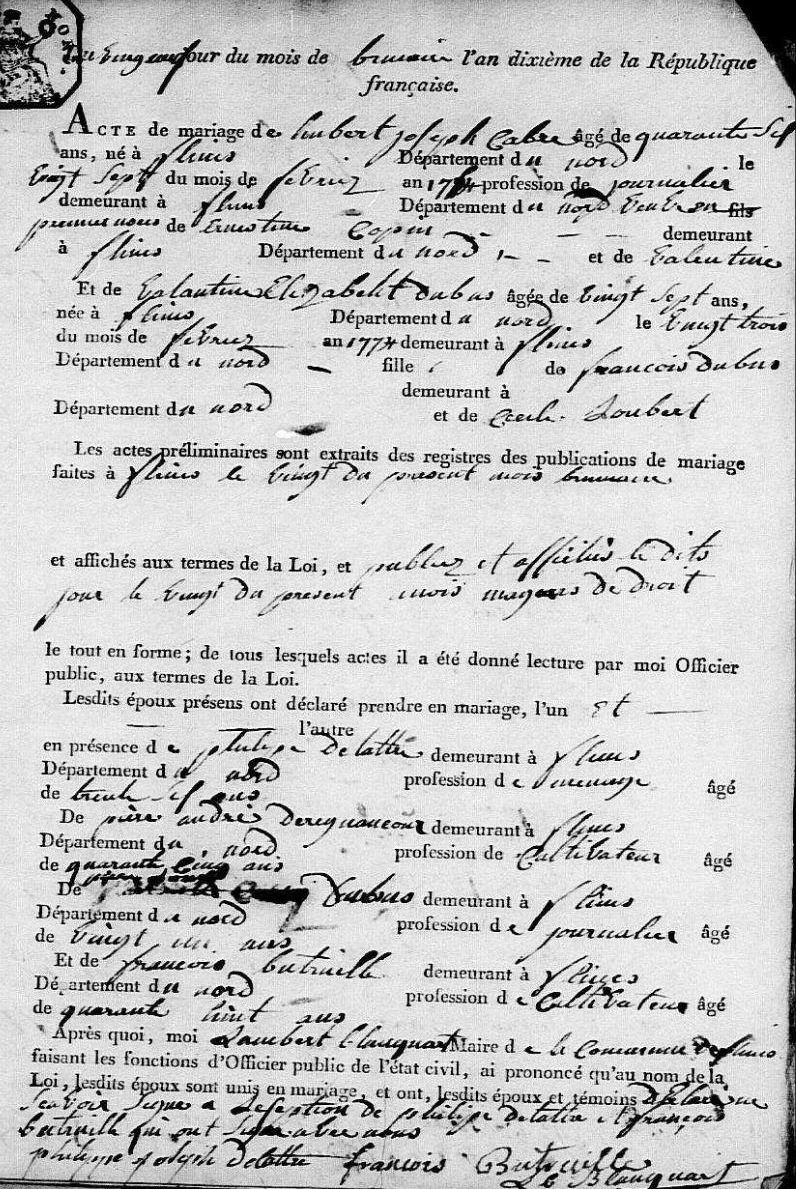 jour du mois de brumaire l'an dixième de la République
française.
ACTE de mariage de humbert joseph Cabre âgé de quarante Sept
ans, né à flines Département du nord le
Vingt Sept du mois de fevriez an profession de journalier
demeurant à flines Département du nord fils
de Ernestine Copin demeurant
à flines Département du nord et de Valentine
Et de Valantine Elizabeht dubus âgée de Vingt Sept ans,
née à flines Département du nord le Vingt trois
du mois de fevriez an 1774 demeurant à flines
Département du nord fille de francois dubus
demeurant à
Département du nord et de Cecile Joubert
Les actes préliminaires sont extraits des registres des publications de mariage
faites à flines le Vingt du present mois brumaire
et affichés aux termes de la Loi, et publiez et affichés le dits
jour le Vingt du present mois de droit
le tout en forme ; de tous lesquels actes il a été donné lecture par moi Officier
public, aux termes de la Loi.
Lesdits époux présens ont déclaré prendre en mariage, l'un Et
l'autre
en présence de philipe Delattre demeurant à flines
Département du nord profession de âgé
de trente ans
De piere andré Deregnaucour demeurant à flines
Département du nord profession de Cultivateur âgé
de quarante Cinq ans
De Dubus demeurant à flines
Département du nord profession de journalier âgé
de Vingt un ans
Et de francois butruille demeurant à flines
Département du nord profession de Cultivateur âgé
de quarante huit ans
Après quoi, moi Lambert blauquart Maire de la Commune de flines
faisant les fonctions d'Officier public de l'état civil, ai prononcé qu'au nom de la
Loi, lesdits époux sont unis en mariage, et ont, lesdits époux et témoins Déclaré ne
Scavoir Signe a de philipe Delattre et françois
butruille qui ont Signe avec nous
philippe joseph Delattre francois Butruille
L Blauquart